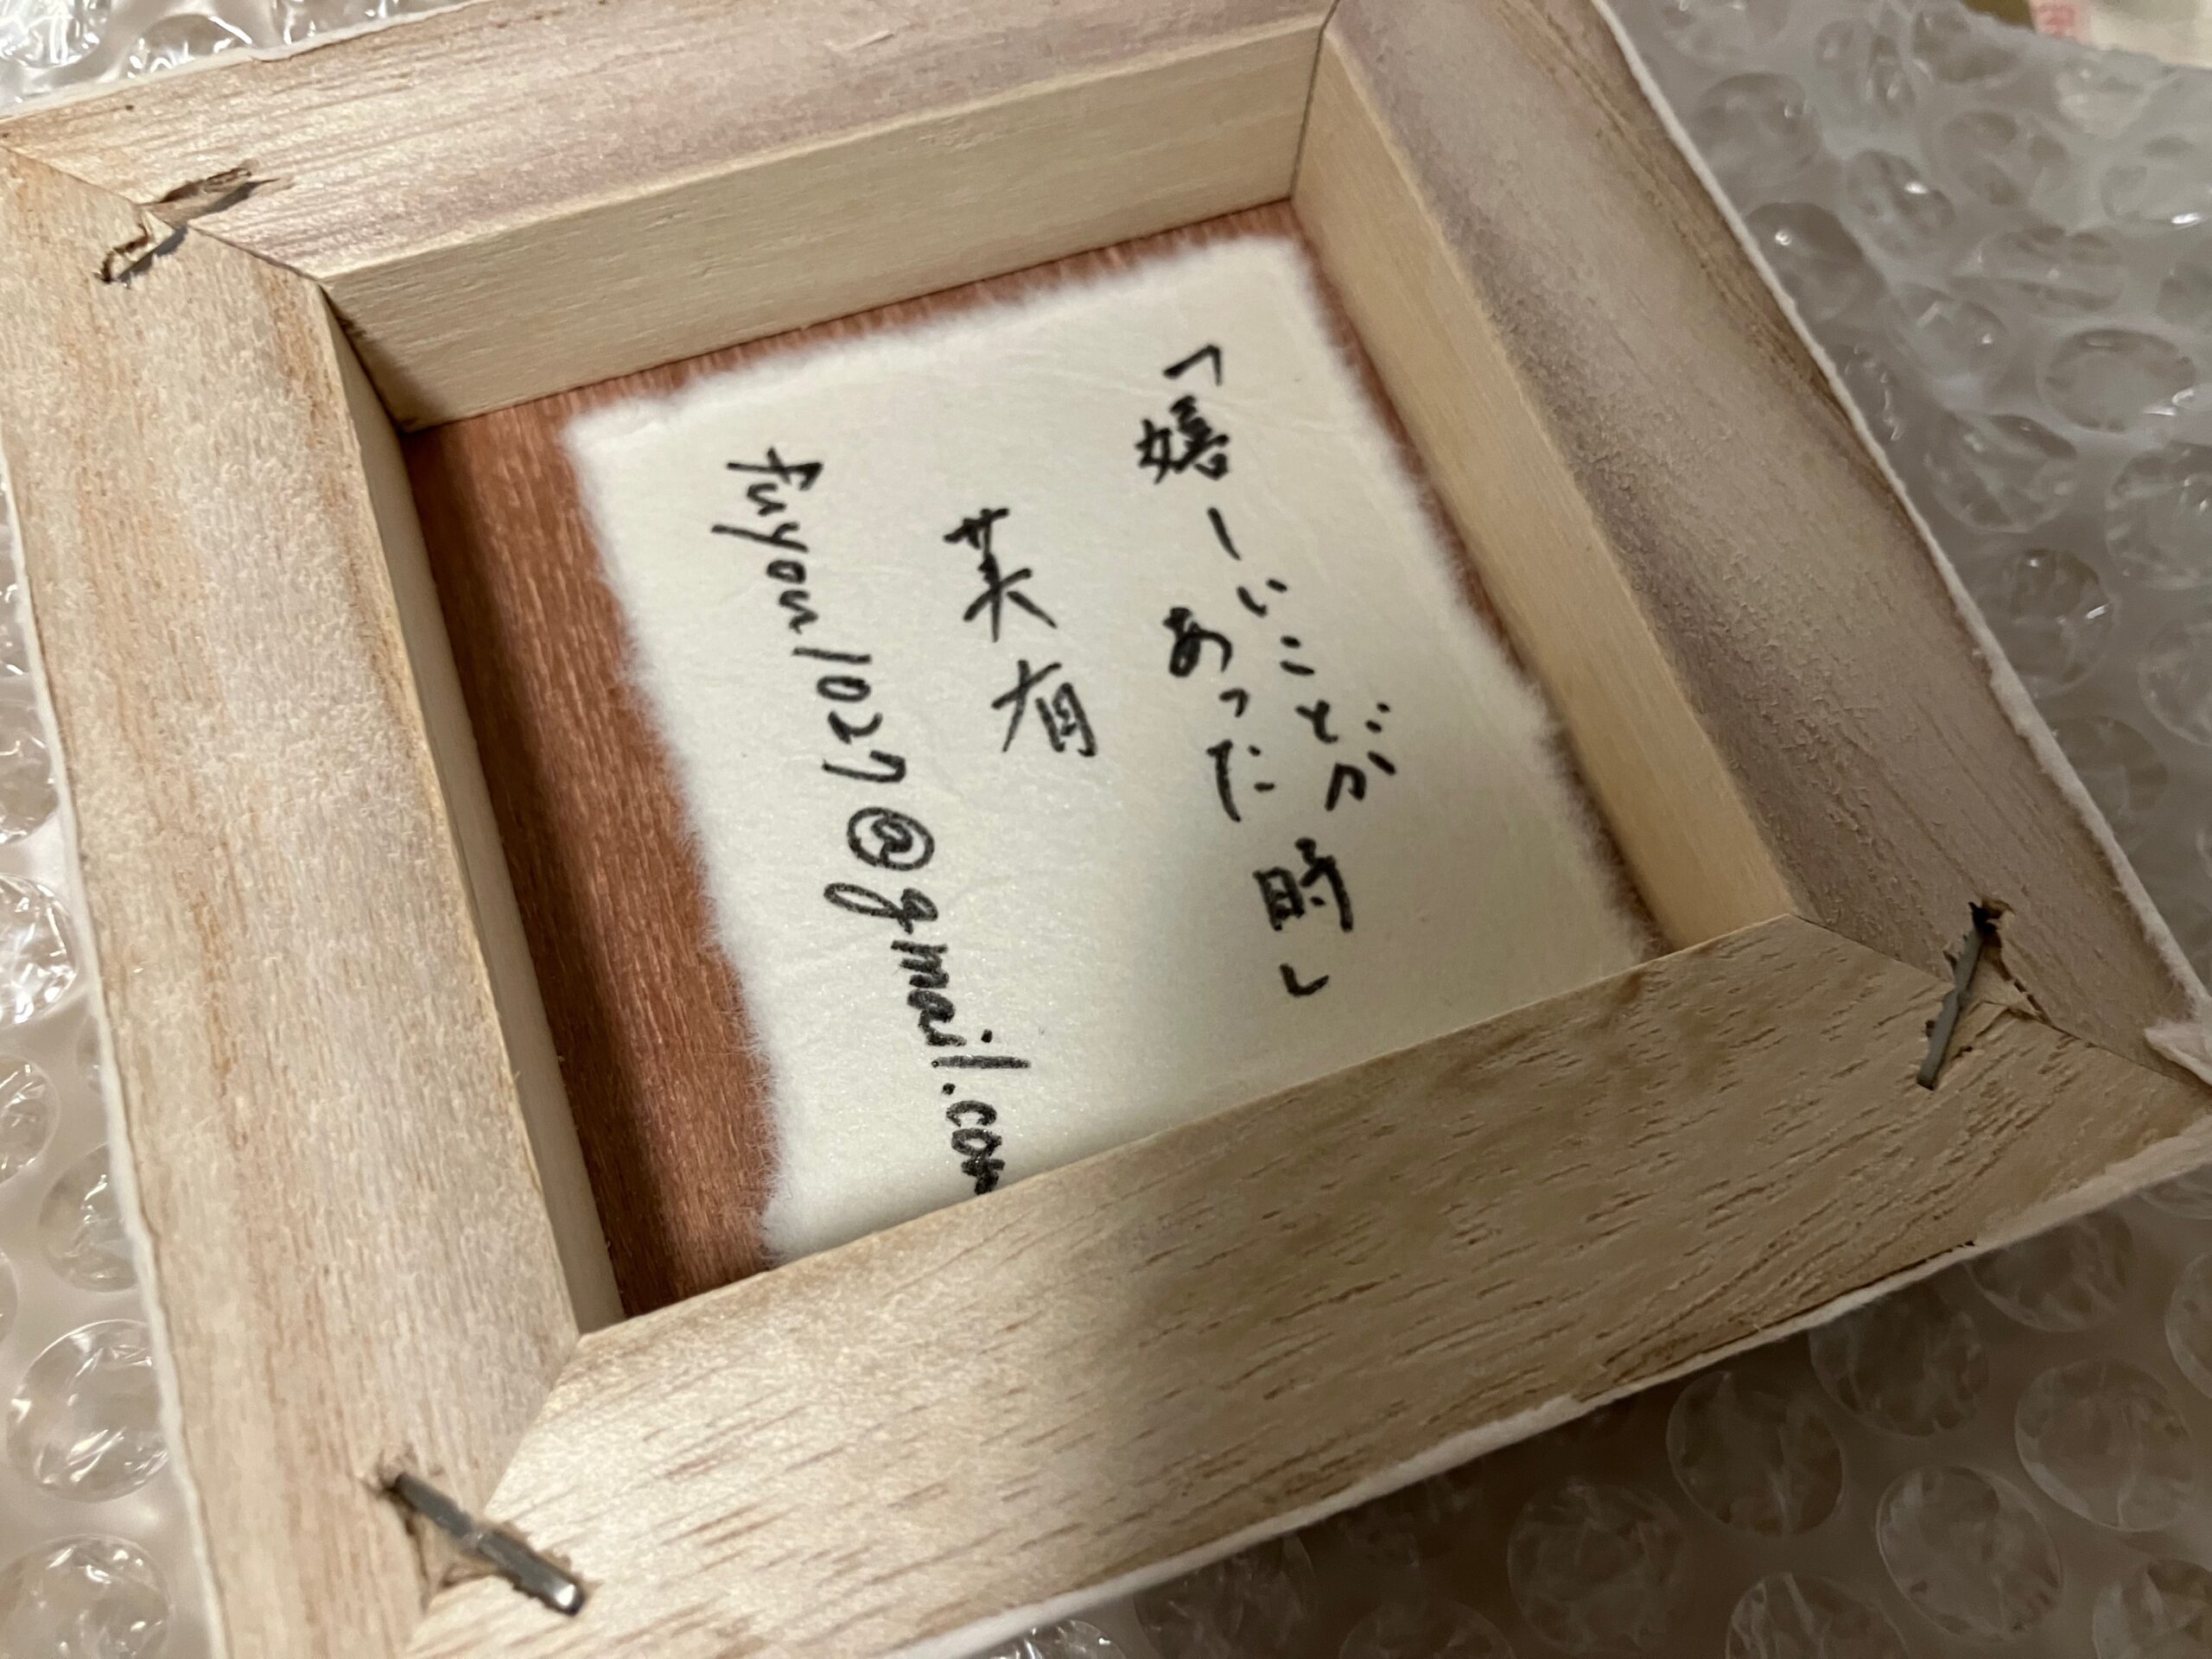 「嬉しいことが
あった時」
芙有
fuyou1027@gmail.com